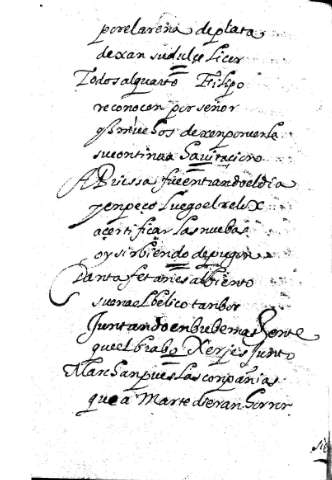 por el arena de plata
dexan su dulçe licor
Todos al quarto Filipo
reconocen por señor
dexan por verle
su continua
A Priessa fue entrando el dia
y enpeço luego el relox
a certificar las nuebas
oy sirbiendo de
tafetanes al biento
suena el belico tanbor
Juntando en brebe mas Jente
que el brabo Xerjes Junto
Marchan pues las conpañias
que a Marte dieran